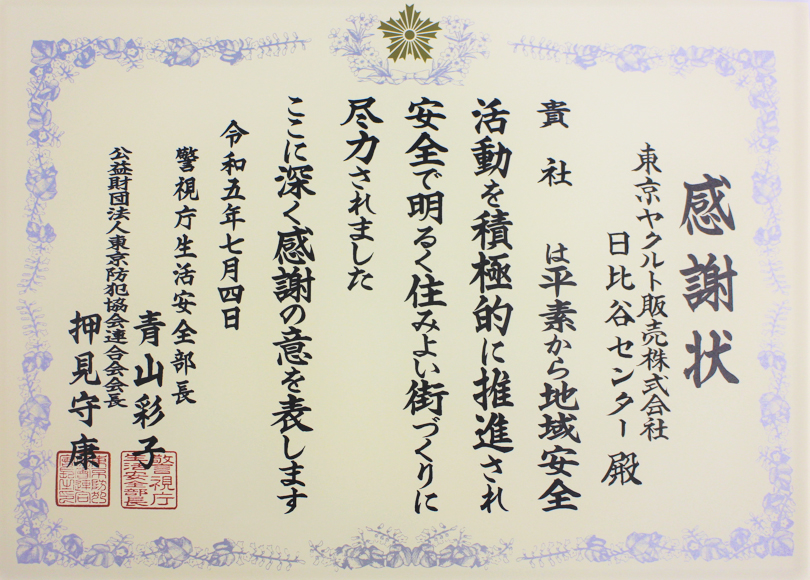 感謝状
東京ヤクルト販売株式会社
日比谷センター 殿
貴社 は平素から地域安全
活動を積極的に推進され
安全で明るく住みよい街づくりに
尽力されました
ここに深く感謝の意を表します
令和五年七月四日
警視庁生活安全部長
青山彩子
警視庁
生活安全部長
公益財団法人東京防犯協会連合会会長
押見守康